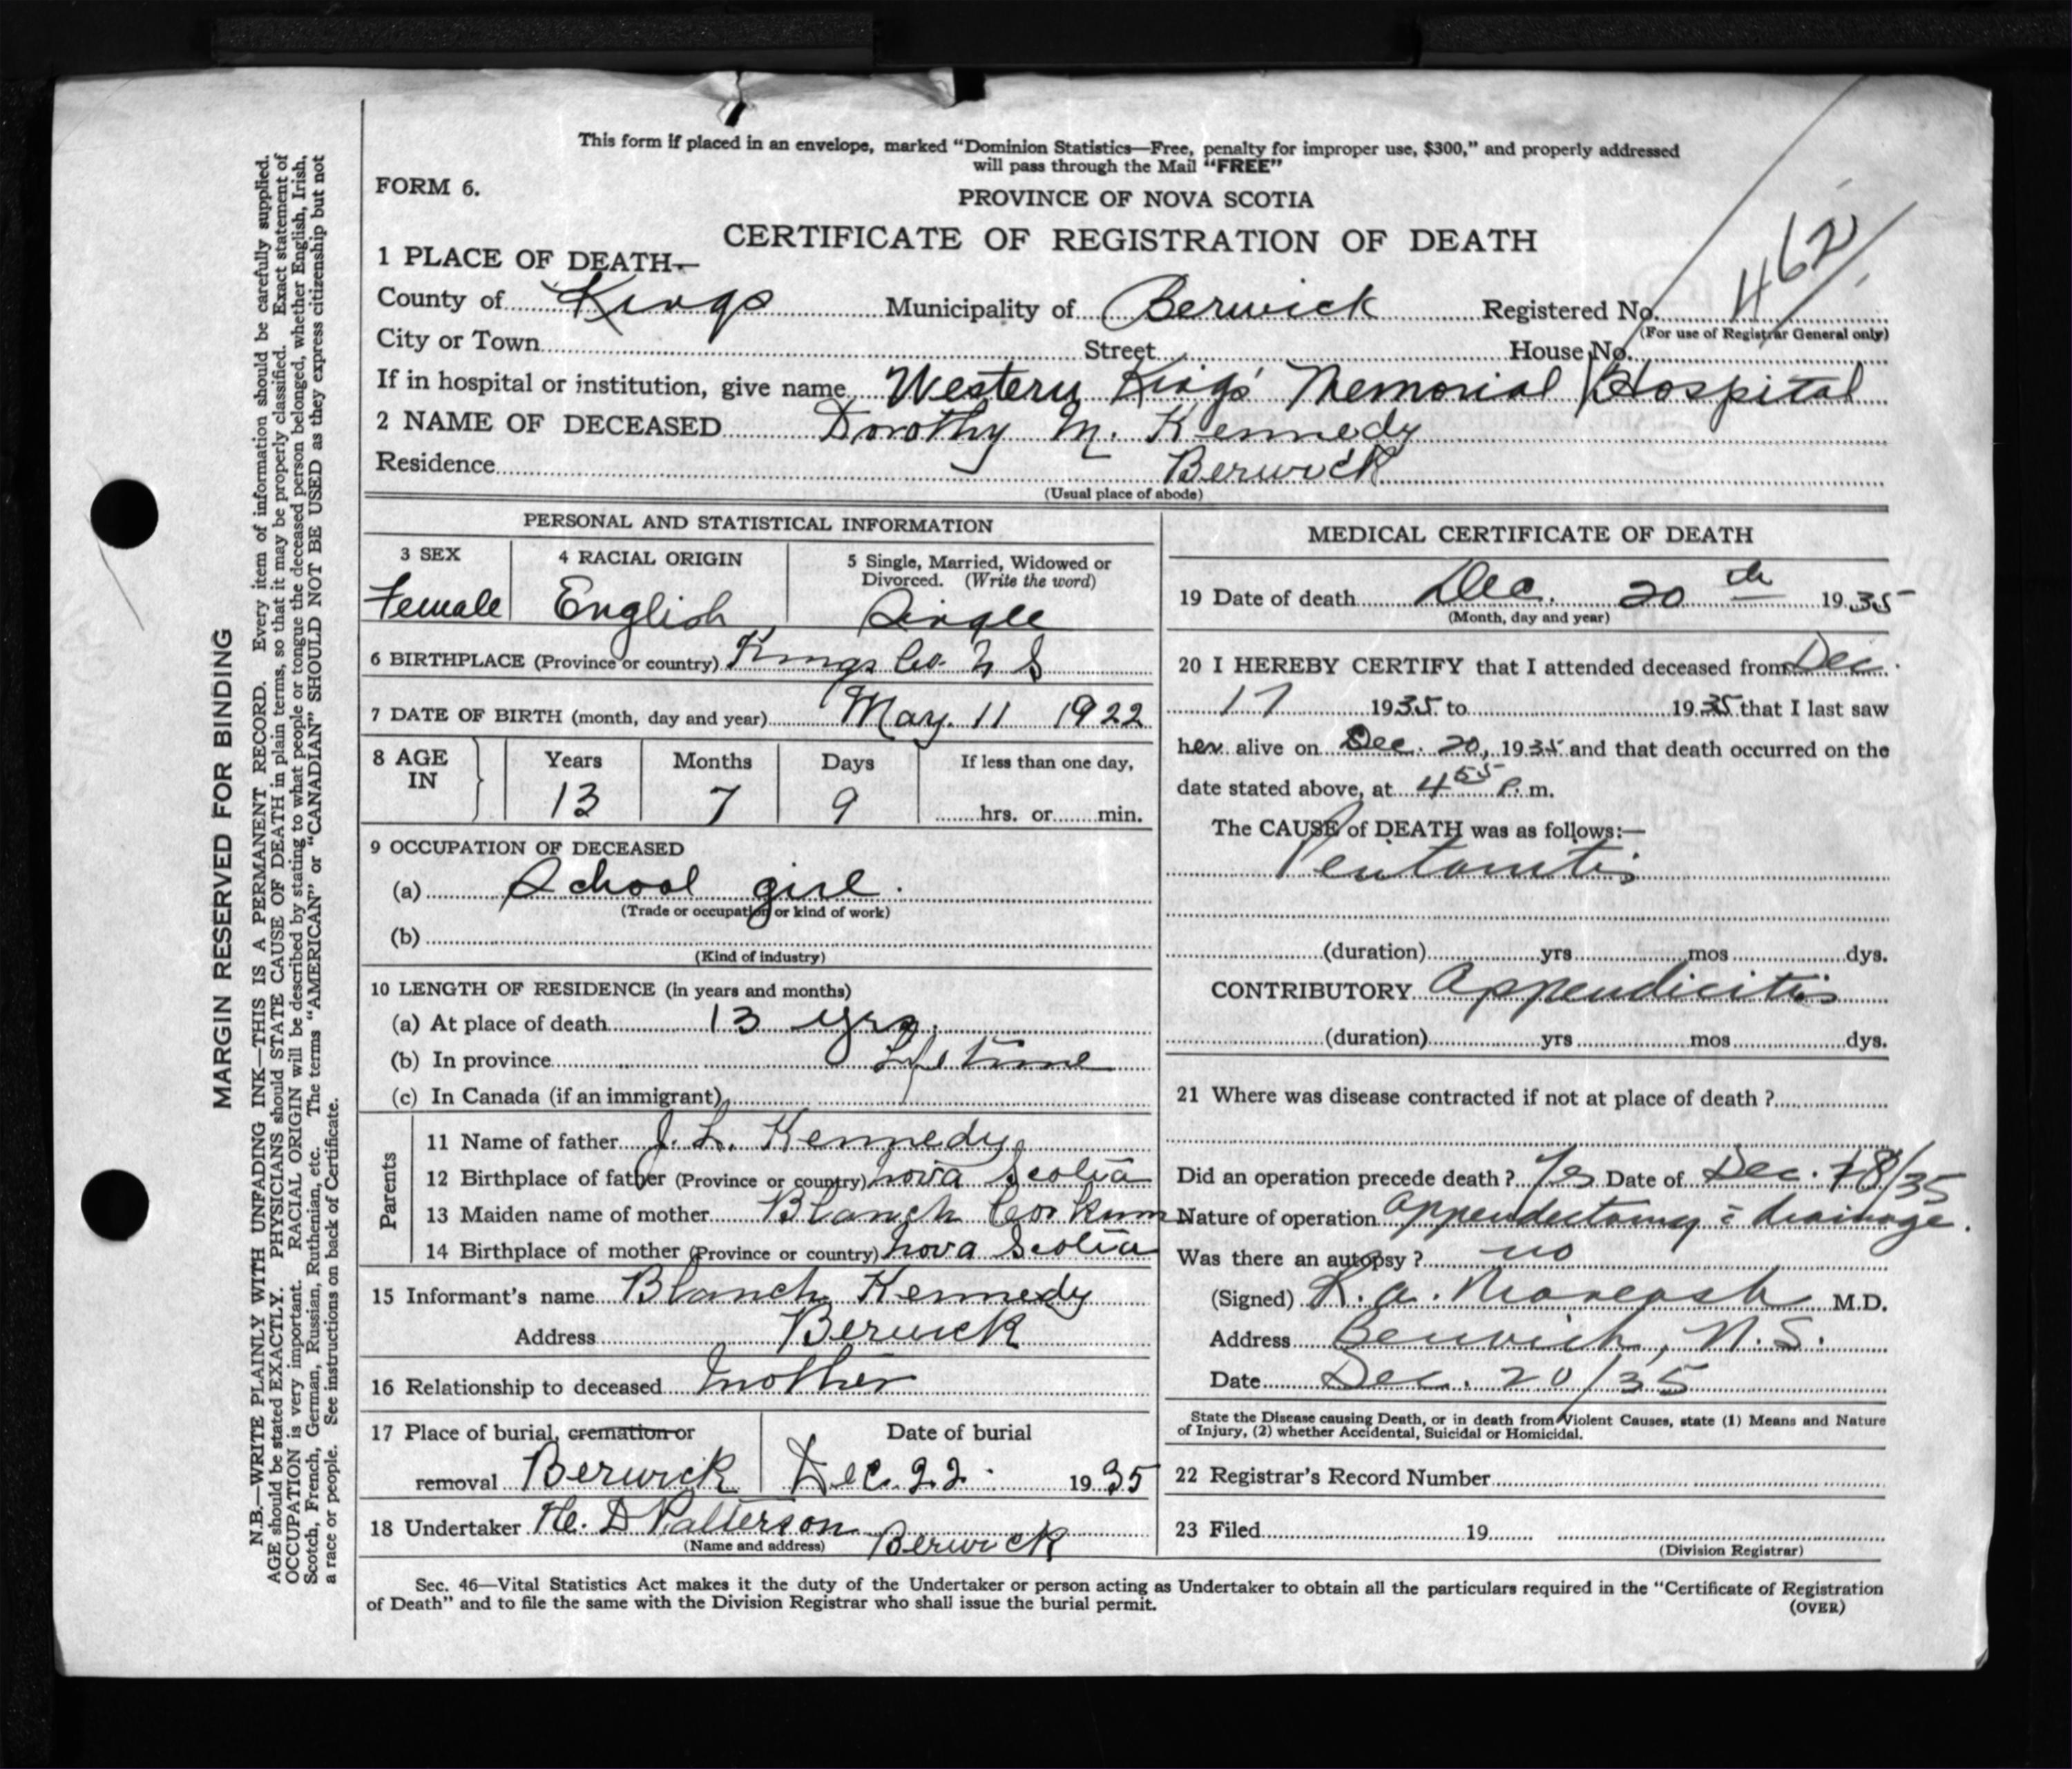 This form if placed in an envelope, marked "Dominion Statistics—Free, penalty for improper use, $300," and properly addressed
will pass through the Mail "FREE"
FORM 6.
PROVINCE OF NOVA SCOTIA
CERTIFICATE OF REGISTRATION OF DEATH
462
1 PLACE OF DEATH—
County of Kings Municipality of Berwick Registered No.
(For use of Registrar General only)
City or Town Street House No.
If in hospital or institution, give name Western Kings' Memorial Hospital
2 NAME OF DECEASED Dorothy M. Kennedy
Residence Berwick
(Usual place of abode)
PERSONAL AND STATISTICAL INFORMATION
3 SEX 4 RACIAL ORIGIN 5 Single, Married, Widowed or
Divorced. (Write the word)
Female English Single
6 BIRTHPLACE (Province or country) Kings Co. N S
7 DATE OF BIRTH (month, day and year) May. 11 1922
8 AGE IN Years Months Days If less than one day,
13 7 9 hrs. or min.
9 OCCUPATION OF DECEASED
(a) School girl.
(Trade or occupation or kind of work)
(b)
(Kind of industry)
10 LENGTH OF RESIDENCE (in years and months)
(a) At place of death 13 yrs.
(b) In province Life time
(c) In Canada (if an immigrant)
Parents
11 Name of father J. L. Kennedy
12 Birthplace of father (Province or country) Nova Scotia
13 Maiden name of mother Blanch Corkum
14 Birthplace of mother (Province or country) Nova Scotia
15 Informant's name Blanch Kennedy
Address Berwick
16 Relationship to deceased Mother
17 Place of burial, cremation or Date of burial
removal Berwick Dec. 22. 1935
18 Undertaker H. D Patterson
(Name and address) Berwick
MEDICAL CERTIFICATE OF DEATH
19 Date of death Dec. 20th 1935
(Month, day and year)
20 I HEREBY CERTIFY that I attended deceased from Dec.
17 1935 to 1935 that I last saw
her alive on Dec. 20, 1935 and that death occurred on the
date stated above, at 4 55 P. m.
The CAUSE of DEATH was as follows:—
Peritonitis
(duration) yrs mos dys.
CONTRIBUTORY Appendicitis
(duration) yrs mos dys.
21 Where was disease contracted if not at place of death ?
Did an operation precede death ? Yes Date of Dec. 18/35
Nature of operation Appendectomy c drainage.
Was there an autopsy ? no
(Signed) R. A. M.D.
Address Berwick, N.S.
Date Dec. 20/35
State the Disease causing Death, or in death from Violent Causes, state (1) Means and Nature
of Injury, (2) whether Accidental, Suicidal or Homicidal.
22 Registrar's Record Number
23 Filed 19
(Division Registrar)
Sec. 46—Vital Statistics Act makes it the duty of the Undertaker or person acting as Undertaker to obtain all the particulars required in the "Certificate of Registration
of Death" and to file the same with the Division Registrar who shall issue the burial permit.
(OVER)
MARGIN RESERVED FOR BINDING
N.B.—WRITE PLAINLY WITH UNFADING INK—THIS IS A PERMANENT RECORD. Every item of information should be carefully supplied.
AGE should be stated EXACTLY. PHYSICIANS should STATE CAUSE OF DEATH in plain terms, so that it may be properly classified. Exact statement of
OCCUPATION is very important. RACIAL ORIGIN will be described by stating to what people or tongue the deceased person belonged, whether English, Irish,
Scotch, French, German, Russian, Ruthenian, etc. The terms "AMERICAN" or "CANADIAN" SHOULD NOT BE USED as they express citizenship but not
a race or people. See instructions on back of Certificate.